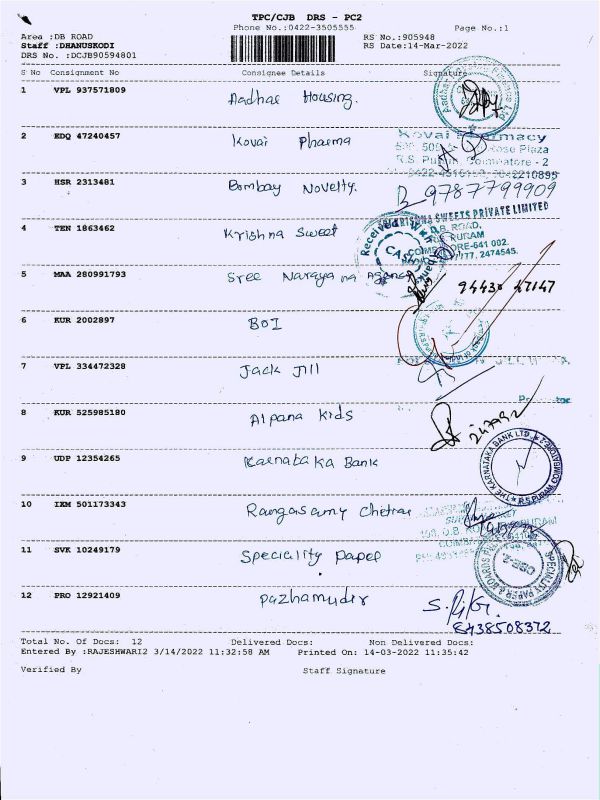 TPC/CJB DRS - PC2
Phone No.:0422-3505555 Page No.:1
Area :DB ROAD RS No.:905948
Staff :DHANUSKODI RS Date:14-Mar-2022
DRS No. :DCJB90594801
S No Consignment No Consignee Details Signature
1 VPL 937571809 Aadhar Housing.
2 EDQ 47240457 Kovai Pharma
Kovai
R.S. Puram, Coimbatore - 2
3 HSR 2313481 Bombay Novelty. 9787799909
SWEETS PRIVATE LIMITED
4 TEN 1863462 Krishna Sweet
D.B. ROAD,
641 002.
2474545.
5 MAA 280991793 Sree Narayana Agency 94430 47147
6 KUR 2002897 BOI
7 VPL 334472328 Jack Jill
8 KUR 525985180 Alpana kids
9 UDP 12354265 Karnataka Bank
THE KARNATAKA BANK LTD. R.S. PURAM, COIMBATORE-2
10 IXM 501173343 Rangasamy Chettiar
11 SVK 10249179 Speciality Paper
SPECIALITY PAPER & BOARDS
CBE-2
12 PRO 12921409 Pazhamudir
8438508372
Total No. Of Docs: 12 Delivered Docs: Non Delivered Docs:
Entered By :RAJESHWARI2 3/14/2022 11:32:58 AM Printed On: 14-03-2022 11:35:42
Verified By Staff Signature